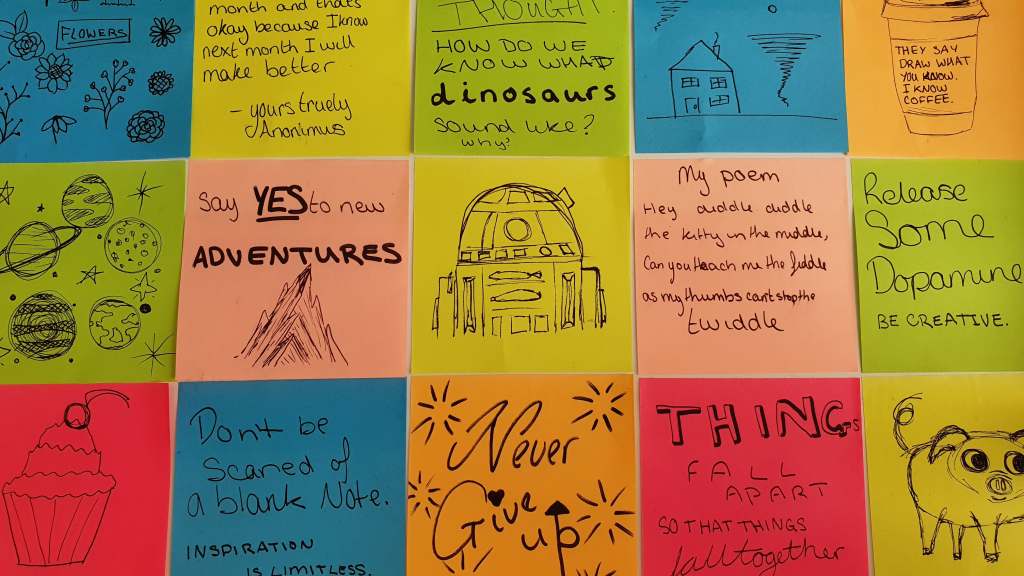 FLOWERS
month and thats
okay because I know
next month I will
make better
- yours truely
Anonimus
THOUGHT.
HOW DO WE
KNOW WHAT
dinosaurs
sound like?
why?
THEY SAY
DRAW WHAT
YOU KNOW.
I KNOW
COFFEE.
Say YES to new
ADVENTURES
My poem
Hey diddle diddle
the kitty in the middle,
Can you teach me the fiddle
as my thumbs cant stop the
twiddle
Release
Some
Dopamine
BE CREATIVE.
Dont be
Scared of
a blank Note.
INSPIRATION
IS LIMITLESS.
Never
Give
up
THINGS
FALL
APART
SO THAT THINGS
fall together